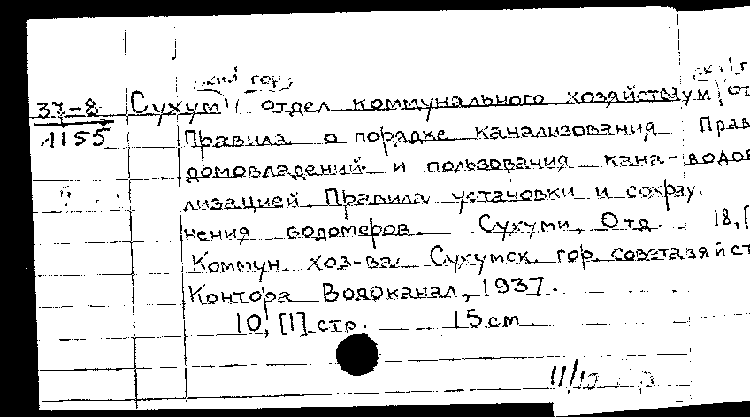 ский гор.
37-8 Сухум отдел коммунального хозяйства
1155 Правила о порядке канализования
домовладений и пользования кана-
лизацией. Правила установки и сохра
нения водомеров. Сухуми, Отд.
Коммун. хоз-ва Сухумск. гор. совета
Контора Водоканал, 1937.
10, [1] стр. 15 см